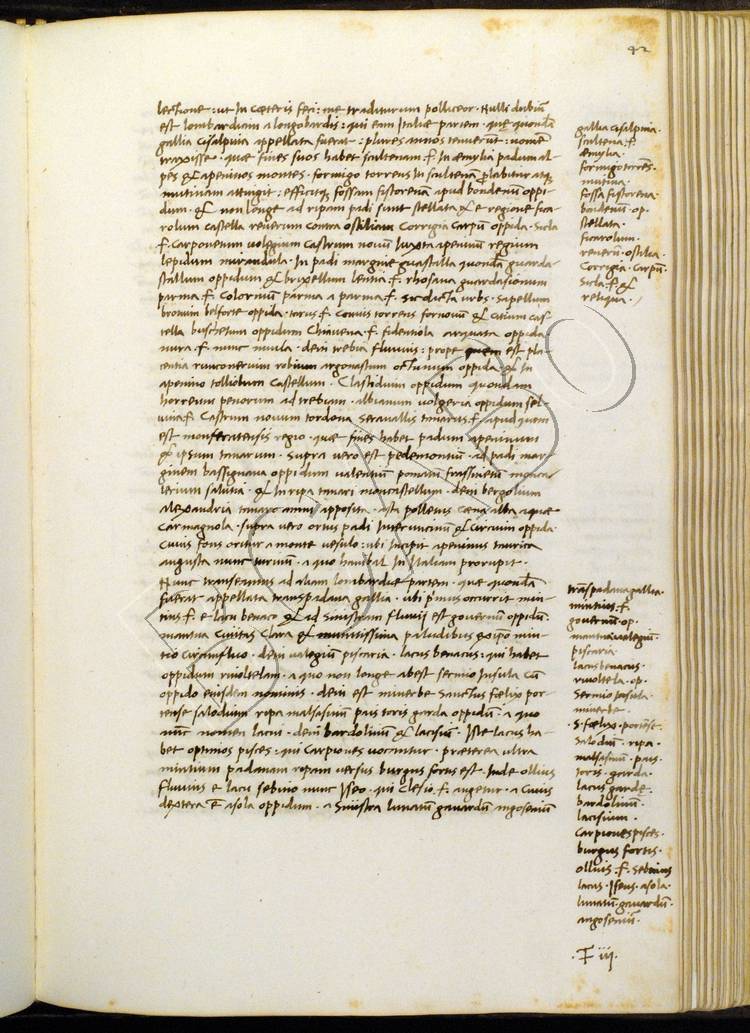 42
lectione: ut In cæteris feci: me traditurum polliceor. Nulli dubiũ
est lombardiam a longobardis: qui eam Italiæ partem. quę quondã
gallia cisalpina appellata fuerat: plures annos tenuerũt: nomẽ
traxisse. quæ fines suos habet scultenam .f. In æmylia padum al
pes & apeninos montes. formigo torrens In scultenã plabitur atq
mutinam attingit: efficitq fossam fistorenã apud bondenũ oppi
dum. & non longe ad ripam padi sunt stellata & e regione fica
rolum castella reuerum contra ostiliam Corrigia Carpũ oppida. Sicla
.f. Carponetum Castrum nouũ Iuxta apeninũ regium
lepidum mirandula. In padi margine guastalla quondã guarda
stallum oppidum & brixellum lentia .f. rhosana guardasionum
parma .f. Colornũ parma a parma .f. sic dicta urbs. Sapellum
belforte oppida. tarus .f. Conius torrens fornouũ & Citium Cas
tella buschetum oppidum Chiauena .f. fidentiola arquata oppida
nura .f. nunc nuula. dein trebia fluuius: prope quem est pla
centia runconerium robium argonastum octunum oppida. & In
apenino tolliolum Castellum. Clastidium oppidum quondam
horreum penorum ad trebiam. albianum volgeria oppidum sel
uia .f. Castrum nouum tordona Serauallis tanarus .f. apud quem
est monferatensis regio. quæ fines habet padum apeninum
& ipsum tanarum. Supra vero est pedemontiũ. ad padi mar
ginem bassignana oppidum valentiũ pomatũ frassinetũ
salutia. & In ripa tanari moncastellum. dein bergolium
alexandria tanaro amni apposita. asta pollentia alba aquæ
Carmagnola. supra vero ortus padi & oppida
Cuius fons oritur a monte vesulo: ubi Incipit apeninus taurica
augusta nunc turinũ. a quo hanibal In Italiam prorupit.
Nunc transeamus ad aliam lombardiæ partem. quæ quondã
fuerat appellata transpadana gallia. ubi p̃mus occurrit min
tius .f. e lacu benaco & ad sinistram fluuii est gouernũ oppidũ.
mantua Ciuitas Clara & munitissima paludibus min
tio Circumfluo. dein valegiũ piscaria. lacus benacus: qui habet
oppidum riuoltelam. a quo non longe abest sermio Insula cũ
oppido eiusdem nominis. dein est minerbe Sanctus fœlix por
tense salodium ripa malsasinũ pais toris garda oppidũ. a quo
nũc nomen lacui. dein bardolinũ & lacisiũ. Iste lacus ha
bet optimos pisces: qui Carpiones uocantur. præterea ultra
mintium padanam ripam versus burgus fortis est. Inde ollius
fluuius e lacu sebino nunc Iseo. qui Clesio .f. augetur. a Cuius
dextera ẽ asola oppidum. a Sinistra lunatũ gauardũ angosenũ
gallia cisalpina.
scultena .f.
æmylia.
formigo torrẽs.
mutina.
fossa fistorena.
bondenũ. op.
stellata.
ficarolum.
reuerũ. ostilia.
Corrigia. Carpũ.
Sicla .f. &
reliqua.
trãspadana gallia.
mintius .f.
gouernũ. op.
mantua. valegiũ.
piscaria.
lacus benacus.
riuoltela. op.
Sermio Insula.
minerbe.
S. fœlix. portẽse.
Salodiũ. ripa.
malsasinũ. pais.
toris. garda.
lacus gardę.
bardolinũ.
lacisium.
Carpiones pisces.
burgus fortis.
ollius .f. Sebinus
lacus. Iseus. asola.
lunatũ. gauardũ.
angosenũ.
.F iii.